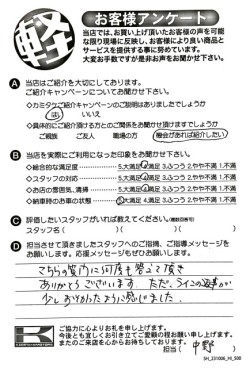 軽
お客様アンケート
当店では、お買い上げ頂いたお客様の声を可能
な限り現場に反映し、お客様により良い商品と
サービスを提供する事に努めています。
大変お手数ですが是非お声をお聞かせ下さい。
A 当店はご紹介を大切にしております。
ご紹介キャンペーンについてお聞かせ下さい。
◇カミタケご紹介キャンペーンのご説明はありましたでしょうか
はい いいえ
◇具体的にご紹介頂ける方とのご関係をお聞かせ頂けますでしょうか
ご親族 ご友人 職場の方 機会があれば紹介したい
B 当店を実際にご利用になった印象をお聞かせ下さい。
◇総合的な満足度 5.大満足 4.満足 3.ふつう 2.やや不満 1.不満
◇スタッフの対応 5.大満足 4.満足 3.ふつう 2.やや不満 1.不満
◇お店の雰囲気、清掃 5.大満足 4.満足 3.ふつう 2.やや不満 1.不満
◇納車時のお車の状態 5.大満足 4.満足 3.ふつう 2.やや不満 1.不満
C 評価したいスタッフがいれば教えてください。(複数回答可)
スタッフ名( )( )
D 担当させて頂きましたスタッフへのご指摘、ご指導メッセージを
お願いします。応援メッセージもぜひお願いします。
こちらの質問に何度も答えて頂き
ありがとうございます。ただ、ラインの返事が
少しおそかったように感じました。
ご協力に心よりお礼を申し上げます。
今後とも宜しくお引き立てご愛顧の程お願い申し上げます。
またのご来店を心からお待ちしております。
担当( 中野 )
SH_231006_HI_000